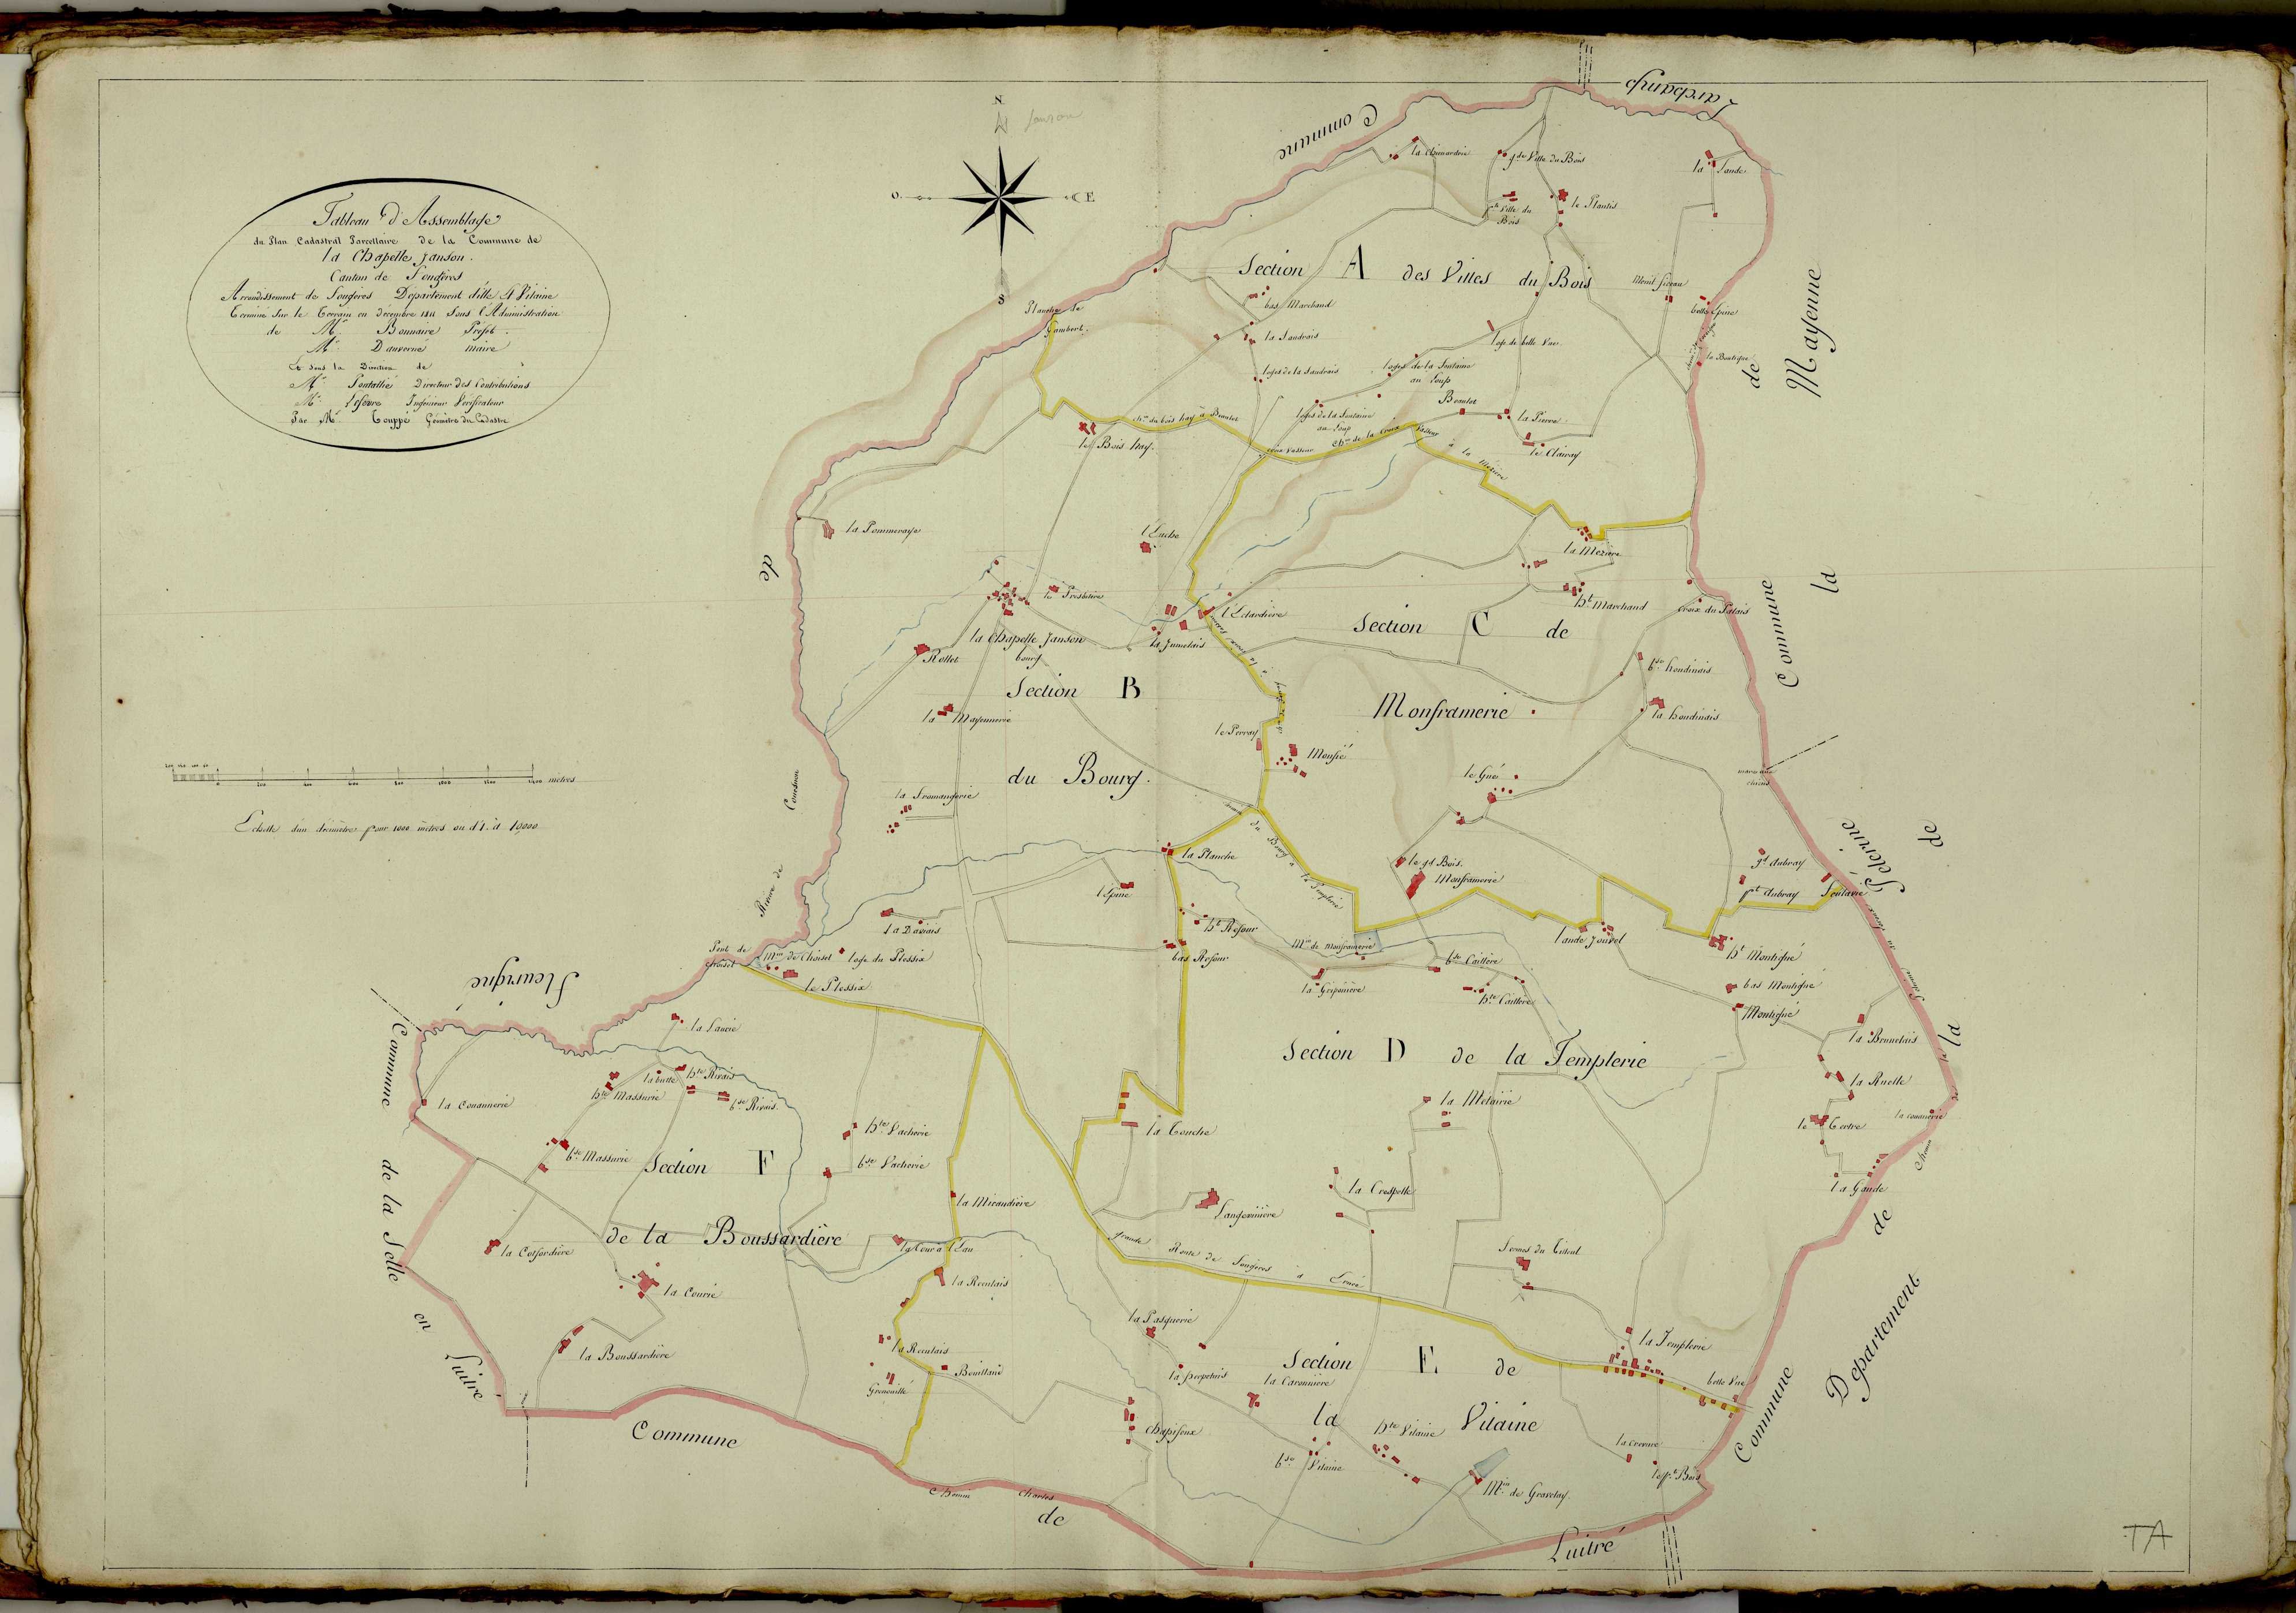 Tableau d'Assemblage
du Plan Cadastral Parcellaire de la Commune de
la Chapelle Janson.
Canton de Fougères
Arrondissement de Fougères Département d'ille & Vilaine
Terminé sur le Terrain en décembre 1811 sous l'Administration
de Mr. Bonnaire Préfet.
Mr. Dauverné maire
Et sous la Direction de
Mr. Pontallié Directeur des Contributions
Mr. Lefebvre Ingénieur Vérificateur
Par Mr. Géomètre du Cadastre
metres
Echelle d'un décimètre pour 1000 mètres ou d'1. à 10,000
N
Janson
O.
E
S
Commune
de
Fleurigné
Larchamp
Commune
de
la
Pélerine
Département
de
la
Mayenne
Commune
de
Luitré
Commune
de
Luitré
Commune
de la Selle
en
Luitré
Section A des Villes du Bois
la Chenardrie
gde Ville du Bois
pte Ville du
Bois
le Plantis
la Lande
bas Marchand
la Jaudrais
loges de la Jaudrais
loge de belle Vue
loges de la fontaine
au loup
loges de la fontaine
au loup
Beaulot
la Pierre
le Clairay
Menil
belle Epine
la Boutique
Planche de
Gambert.
le Bois hay.
chin du bois hay à Beaulot
Croix Vasseur
chin de la croix Vasseur à la Mezière
Section B
du Bourg.
la Pommeraye
l'Euche
le Presbitère
la Chapelle Janson
bourg
Rollet
la Mayennerie
la Jumelais
la Fromangerie
le Perray
la Planche
l'Epine
la Daviais
loge du Plessix
Min de Choisel
Pont de
Choisel
le Plessix
Rivière de Couesnon
ht Refour
bas Refour
la Touche
Section C de
Monframerie
l'Etardière
la Mezière
ht Marchand
Croix du Palais
bse houdinais
la houdinais
Monfié
le Gué
le gd Bois.
Monframerie
mare aux
chiens
gd Aubray
pt Aubray
Foutavie
du Bourg à la Templerie
Section D de la Templerie
Min de Monframerie
lande Jouvel
ht Montigné
bas Montigné
Montigné
la Griponière
bse Caillère
hte Caillère
la Brunelais
la Ruelle
le Tertre
la couannerie
la Gaude
la Metairie
la Crespelle
Langevinière
la Templerie
belle Vue
Grande Route de Fougères à Ernée
Section E de
la Vilaine
la Pasquerie
la perpetais
la Caronnière
Chapifeux
bse Vilaine
hte Vilaine
Min de Gravelay.
la crevure
le pt Bois
Chemin Charles
Section F
de la Boussardière
la Lancie
la butte
hte Rivais
bse Rivais
hte Massurie
bse Massurie
la Couannerie
hte Vacherie
bse Vacherie
la Micaudière
la Cour à l'Eau
la Reculais
la Reculais
Grenouillé
Bouilland
la Coifordière
la Courie
la Boussardière
TA